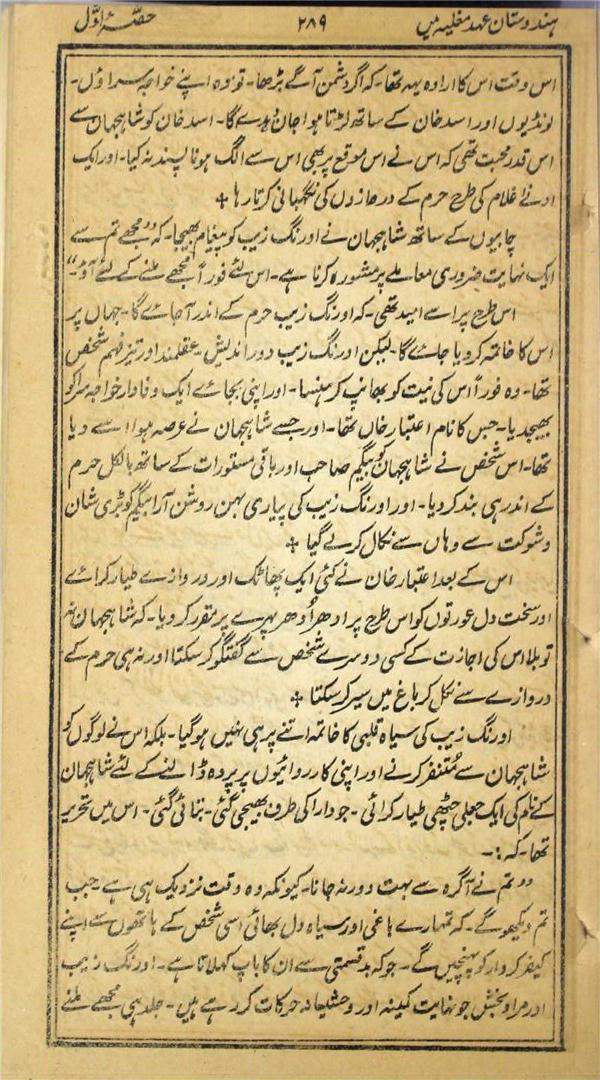 ہندوستان عہد مغلیہ میں ۲۸۹ حصّہ اوّل
اس وقت اس کا ارادہ یہہ تھا۔ کہ اگر دشمن آگے بڑھا۔ تو وہ اپنے خواجہ سراؤں۔
لونڈیوں اور اسد خان کے ساتھ لڑتا ہوا جان دیدے گا۔ اسد خان کو شاہجہان سے
اس قدر محبت تھی کہ اس نے اس موقع پر بھی اس سے الگ ہونا پسند نہ کیا۔ اور ایک
ادنےٰ غلام کی طرح حرم کے دروازوں کی نگہبانی کرتا رہا +
چابیوں کے ساتھ شاہجہان نے اورنگ زیب کو پیغام بھیجا۔ کہ "مجھے تم سے
ایک نہایت ضروری معاملے پر مشورہ کرنا ہے۔ اس لئے فوراً مجھے ملنے کے لئے آؤ"
اس طرح پر اسے امید تھی۔ کہ اورنگ زیب حرم کے اندر آجائے گا۔ جہاں پر
اس کا خاتمہ کر دیا جائے گا۔ لیکن اورنگ زیب دور اندیش۔ عقلمند اور تیز فہم شخص
تھا۔ وہ فوراً اس کی نیت کو بھانپ کر ہنسا۔ اور اپنی بجائے ایک وفادار خواجہ سرا کو
بھیجدیا۔ جس کا نام اعتبار خاں تھا۔ اور جسے شاہجہان نے عرصہ ہوا اسے دیا
تھا۔ اس شخص نے شاہجہان کو بیگم صاحب اور باقی مستورات کے ساتھ بالکل حرم
کے اندر ہی بند کر دیا۔ اور اورنگ زیب کی پیاری بہن روشن آرا بیگم کو بڑی شان
و شوکت سے وہاں سے نکال کر لے گیا +
اس کے بعد اعتبار خان نے کئی ایک پھاٹک اور دروازے طیار کرائے
اور سخت دل عورتوں کو اس طرح پر ادھر اُدھر پہرے پر مقرر کر دیا۔ کہ شاہجہان نہ
تو بلا اس کی اجازت کے کسی دوسرے شخص سے گفتگو کر سکتا اور نہ ہی حرم کے
دروازے سے نکل کر باغ میں سیر کر سکتا +
اورنگ زیب کی سیاہ قلبی کا خاتمہ اتنے پر ہی نہیں ہوگیا۔ بلکہ اس نے لوگوں کو
شاہجہان سے مُتنفر کرنے اور اپنی کارروائیوں پر پردہ ڈالنے کے لئے شاہجہان
کے نام کی ایک جعلی چٹھی طیار کرائی۔ جو دارا کی طرف بھیجی گئی۔ بتائی گئی۔ اس میں تحریر
تھا۔ کہ:۔
"تم نے آگرہ سے بہت دور نہ جانا۔ کیونکہ وہ وقت نزدیک ہی ہے جب
تم دیکھو گے۔ کہ تمہارے باغی اور سیاہ دل بھائی اسی شخص کے ہاتھوں سے اپنے
کیفر کردار کو پہنچیں گے۔ جو کہ بدقسمتی سے ان کا باپ کہلاتا ہے۔ اورنگ زیب
اور مراد بخش جو نہایت کمینہ اور وحشیانہ حرکات کر رہے ہیں۔ جلد ہی مجھے ملنے